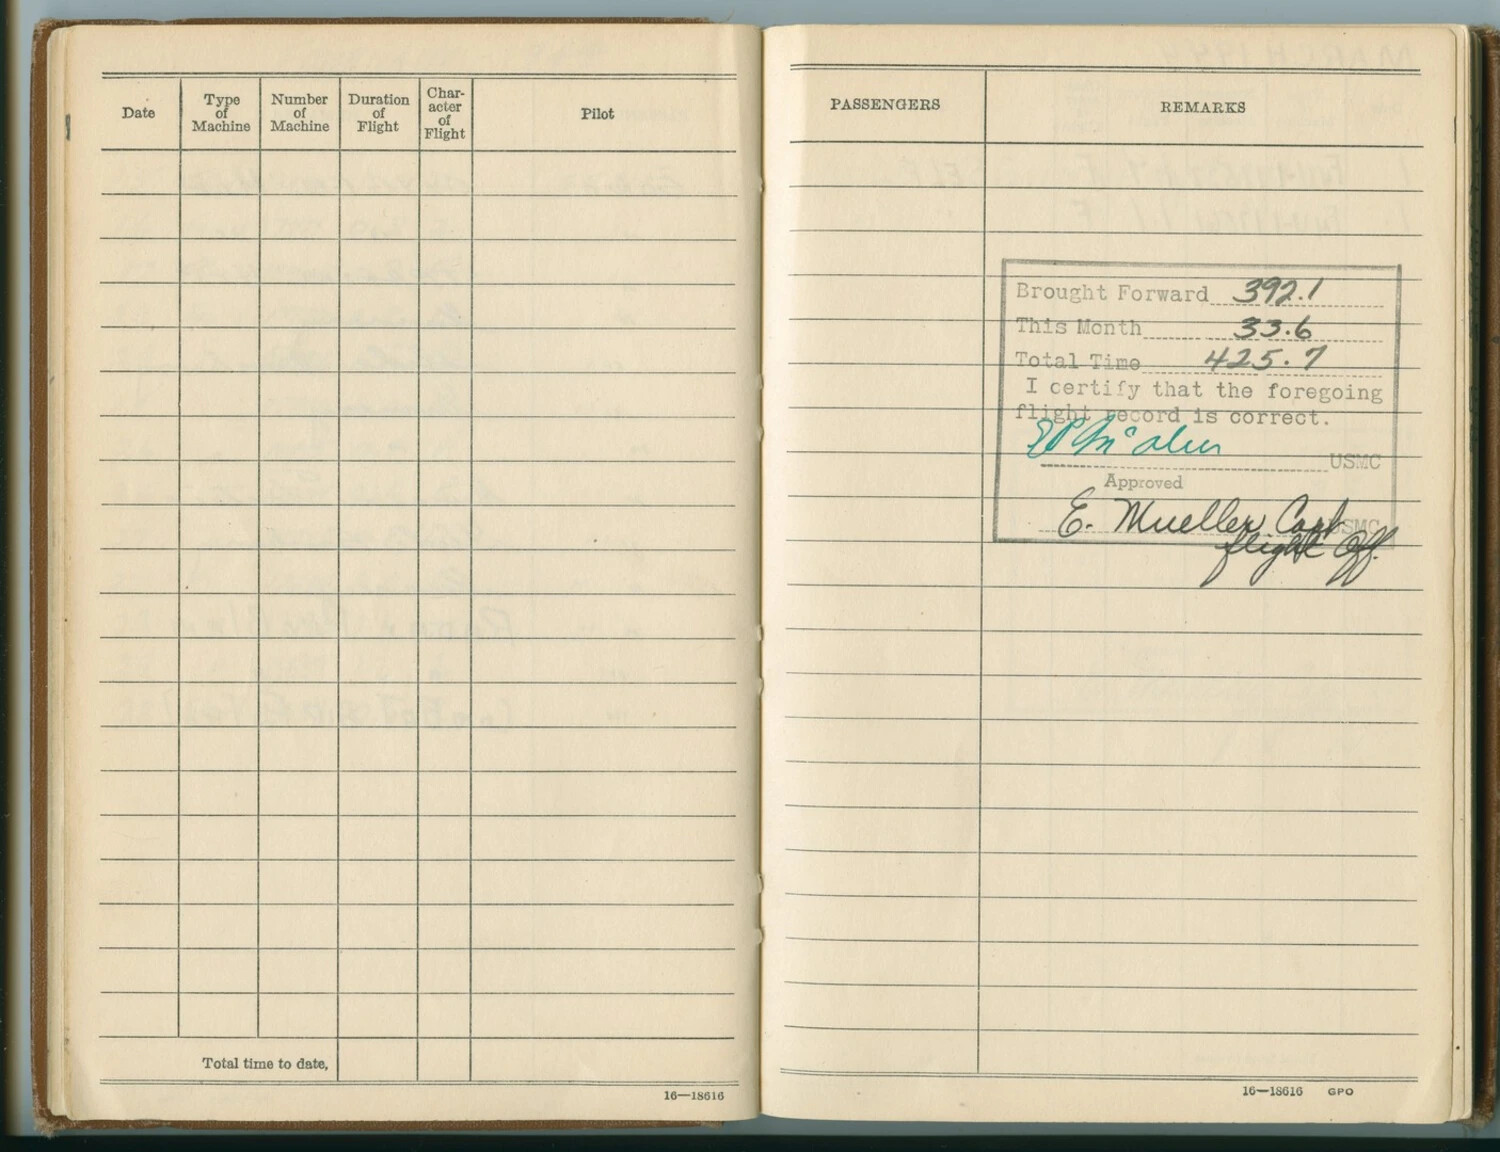 Date
Type of Machine
Number of Machine
Duration of Flight
Char-
acter of Flight
Pilot
Total time to date,
16—18616
PASSENGERS
REMARKS
Brought Forward 392.1
This Month 33.6
Total Time 425.7
I certify that the foregoing
flight record is correct.
USMC
Approved
E. Mueller Capt USMC
flight Off.
16—18616 GPO